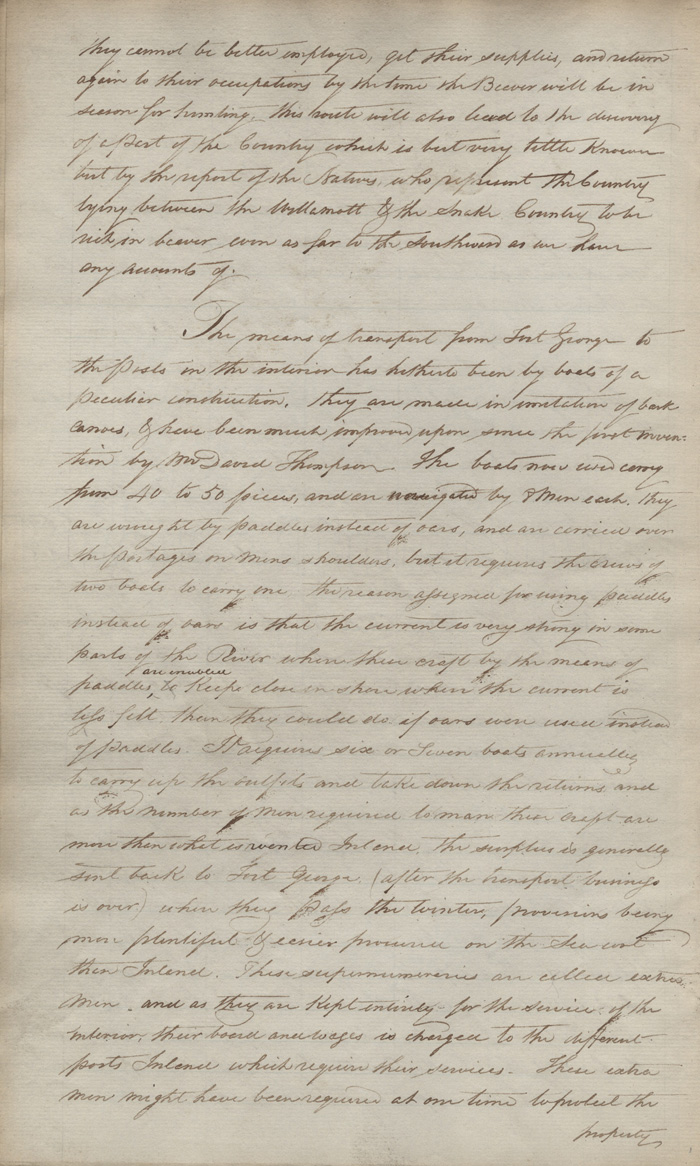 they cannot be better employed, get their supplies, and return
again to their occupations by the time the Beaver will be in
season for hunting, this route will also lead to the discovery
of a part of the Country which is but very little Known
but by the report of the Natives, who represent the Country
lying between the Willamatt & the Snake Country to be
rich in beaver even as far to the Southward as we have
any accounts of.
The means of transport from Fort George to
the Posts in the interior has hitherto been by boats of a
peculiar construction. they are made in imitation of bark
canoes, & have been much improved upon since the first inven-
tion by Mr David Thompson. The boats now used carry
from 40 to 50 pieces, and are navigated by 8 Men each. they
are wrought by paddles instead of oars, and are carried over
the portages on Mens shoulders, but it requires the crews of
two boats to carry one. the reason assigned for using paddles
instead of oars is that the current is very strong in some
parts of the River where these craft by the means of
are enabled
paddles, to Keep close in shore where the current is
less felt than they could do if oars were used instead
of paddles. It requires six or Seven boats annually
to carry up the outfits and take down the returns, and
as the number of Men required to man these craft are
more than what is wanted Inland, the surplus is generally
sent back to Fort George (after the transport business
is over) where they Pass the Winter, provisions being
more plentiful & easier procured on the Sea coast
than Inland. These supernumeraries are called extra
Men. and as they are Kept entirely for the service of the
interior, their board and wages is charged to the different
posts Inland which require their services. These extra
men might have been required at one time to protect the
property